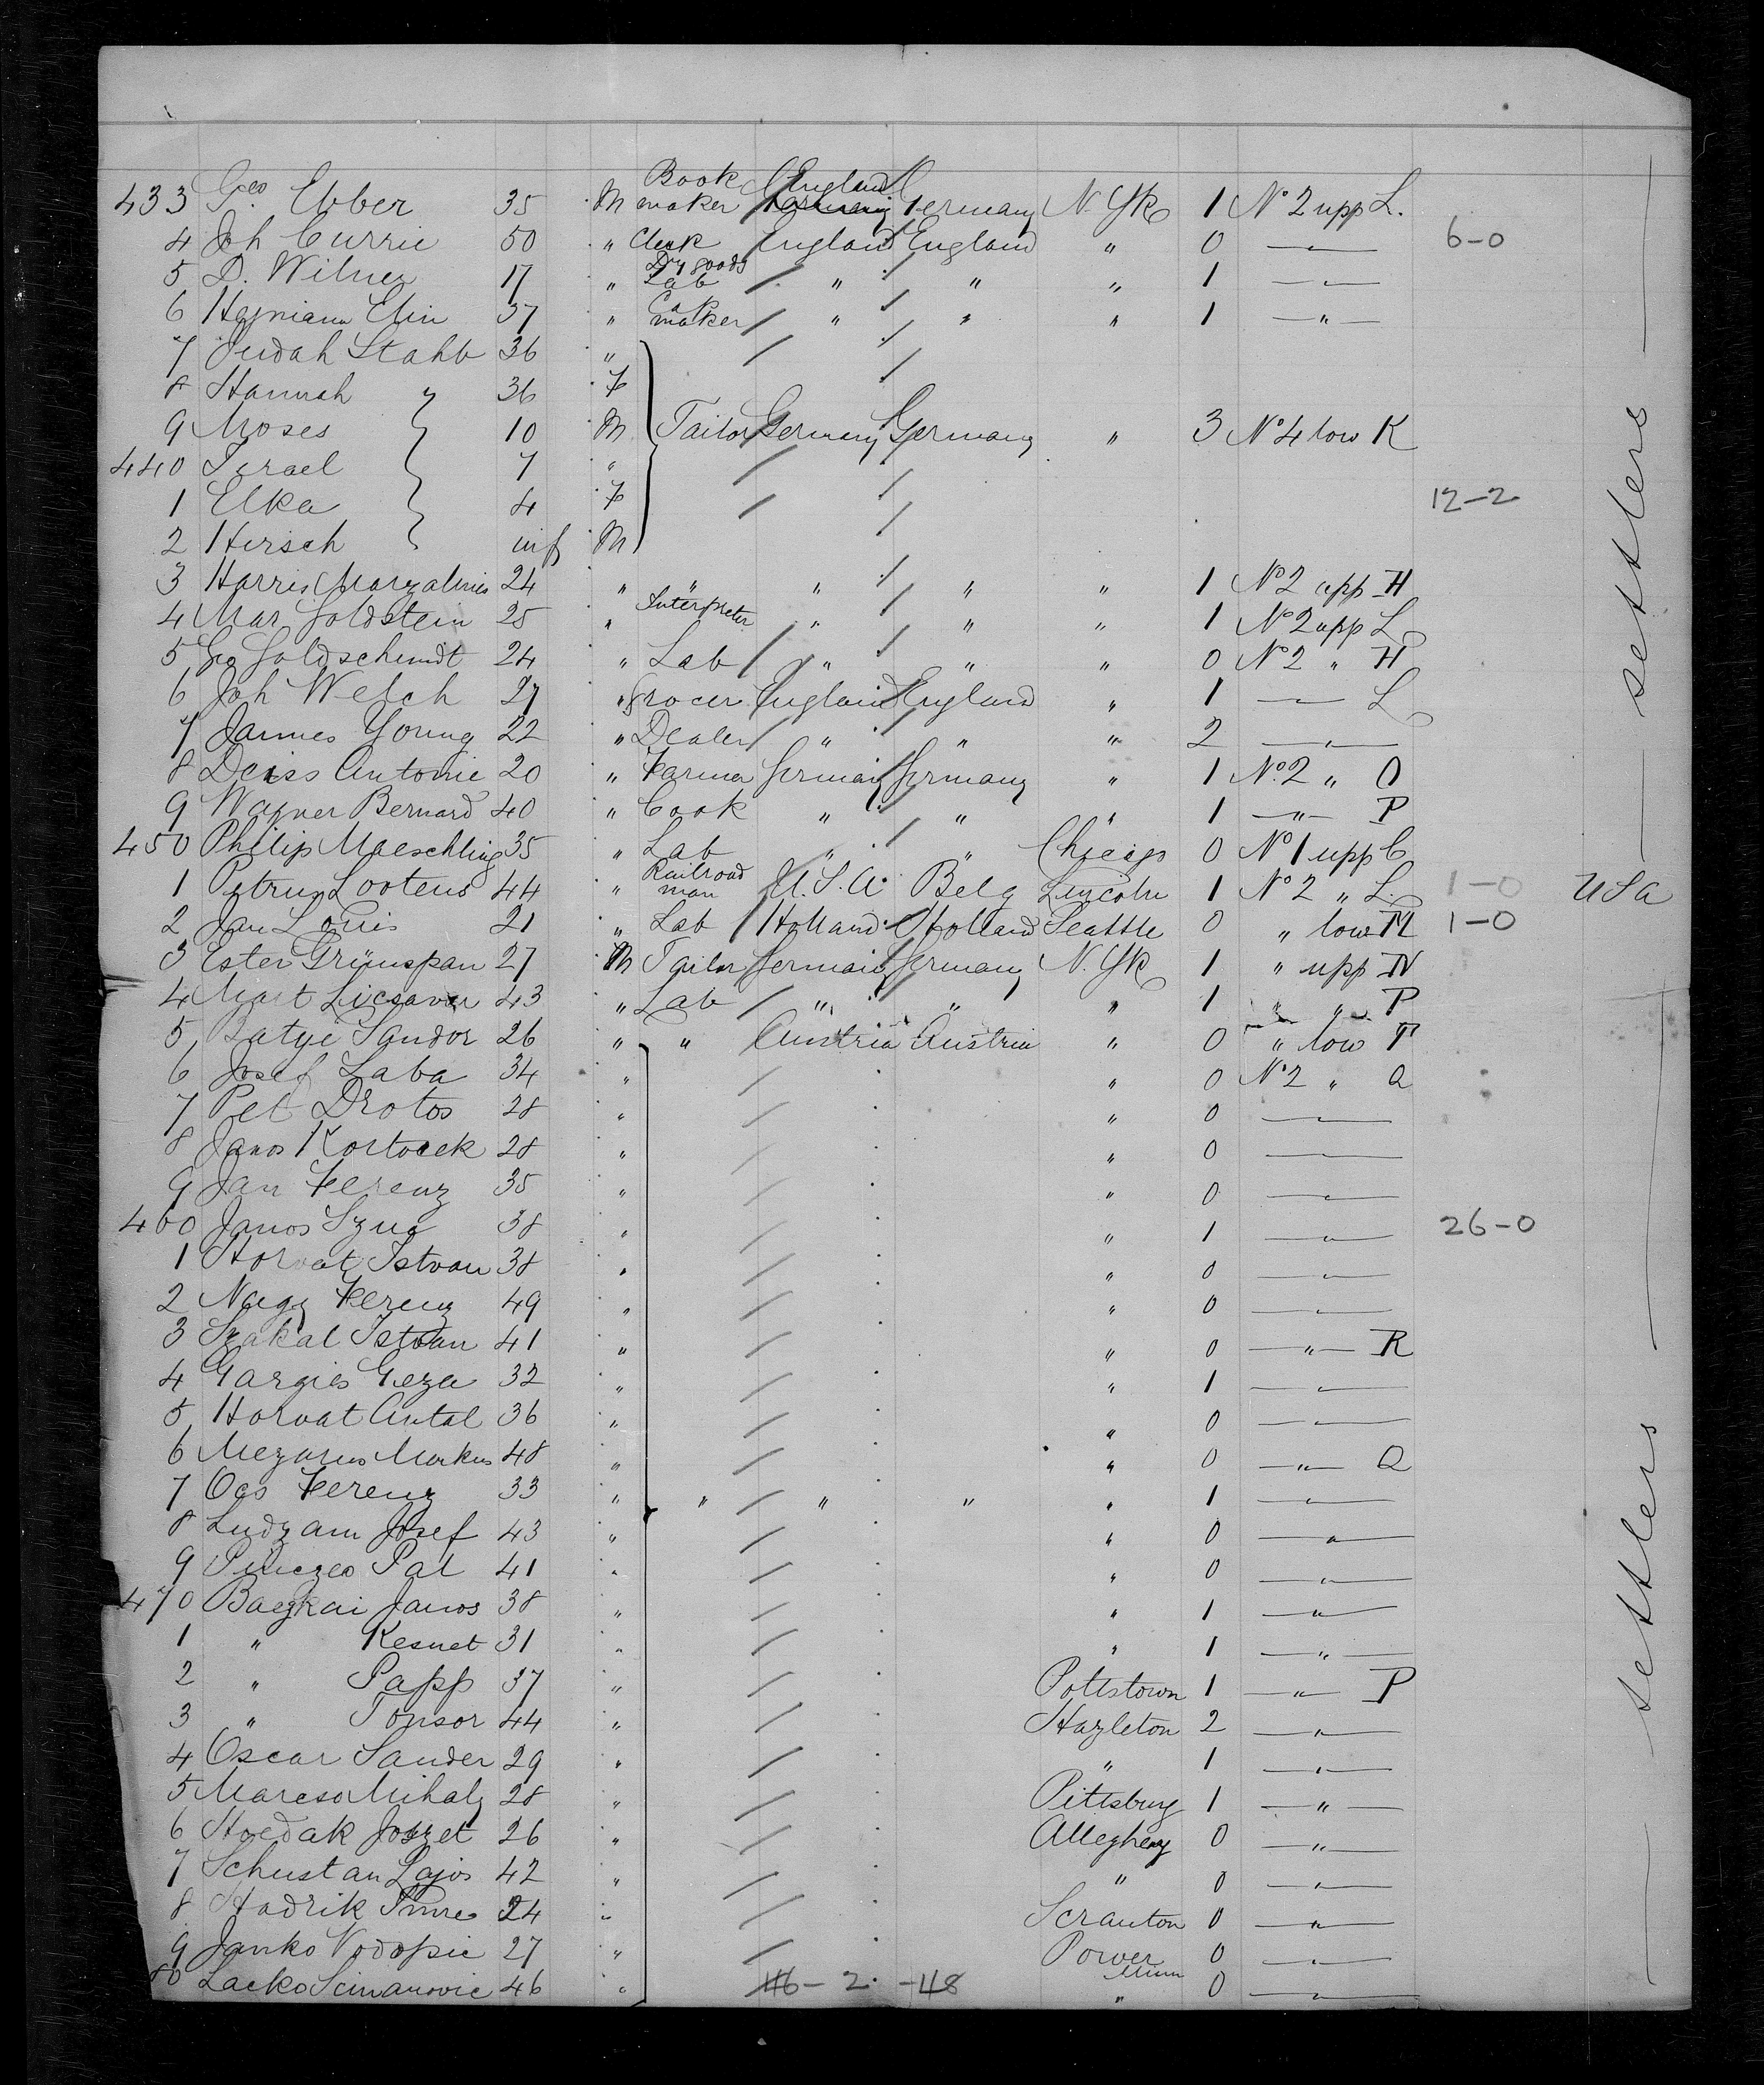 433 Geo. Ebber 35 M Book maker England Germany Germany N. Yk 1 No 2 upp L.
4 Joh Currie 50 " Clerk England England " 0 —"— 6-0
5 D. Wilner 17 " Dry goods Lab " " " 1 —"—
6 Heymann Elin 37 " C maker " " " 1 —"—
7 Judah Stahb 36 "
8 Hannah " 36 F
9 Moses 10 M Tailor Germany Germany " 3 No 4 low K
440 Israel 7 "
1 Elka 4 F 12-2
2 Hirsch inf M
3 Harris 24 " " " " " 1 No 2 upp H
4 Mar Goldstein 25 " Interpreter " " " 1 No 2 upp L
5 Goldschemdt 24 " Lab " " " 0 No 2 " H
6 Joh Welch 27 " Grocer England England " 1 — L
7 James Young 22 " Dealer " " " 2 —"—
8 Deiss Antonie 20 " Farmer Germany Germany " 1 No 2 " O
9 Wagner Bernard 40 " Cook " " " 1 —"— P
450 Philip Maeschling 35 " Lab " " Chicago 0 No 1 upp C
1 Petrus Lootens 44 " Railroad man U.S.A. Belg Lincoln 1 No 2 " L. 1-0 USA
2 Jan Louis 21 " Lab Holland Holland Seattle 0 " low M 1-0
3 Ester Grünspan 27 M Tailor Germany Germany N. Yk 1 " upp N
4 Mart Licsaver 43 " Lab " " " 1 " " P
5 Batye Sandor 26 " " Austria Austria " 0 " low P
6 Josef Laba 34 " " 0 No 2 " Q
7 Pet Drotos 28 " " 0 —"—
8 Janos Kortvcek 28 " " 0 —"—
9 Jan Ferenz 35 " " 0 —"—
460 Janos Szuc 38 " " 1 —"— 26-0
1 Horvat Istvan 38 " " 0 —"—
2 Nagy Ferenz 49 " " 0 —"—
3 Szakal Istvan 41 " " 0 —"— R
4 Gargies Geza 32 " " 1 —"—
5 Horvat Antal 36 " " 0 —"—
6 Mezaros Markus 48 " " 0 —"— Q
7 Ocs Ferenz 33 " " " " " 1 —"—
8 Ludzam Josef 43 " " 0 —"—
9 Pinczeo Pal 41 " " 0 —"—
470 Bagkai Janos 38 " " 1 —"—
1 " Kesnet 31 " " 1 —"—
2 " Papp 37 " Pottstown 1 —"— P
3 " Tonsor 44 " Hazleton 2 —"—
4 Oscar Sander 29 " " 1 —"—
5 Mareso Mihaly 28 " Pittsburg 1 —"—
6 Hoedak Joszet 26 " Allegheny 0 —"—
7 Schustan Lajos 42 " " 0 —"—
8 Hadrik Imre 24 " Scranton 0 —"—
9 Janko Vodopic 27 " Power Minn 0 —"—
80 Lacko Scimanovic 46 " 46-2-48 " 0 —"—
— settlers —
— settlers —